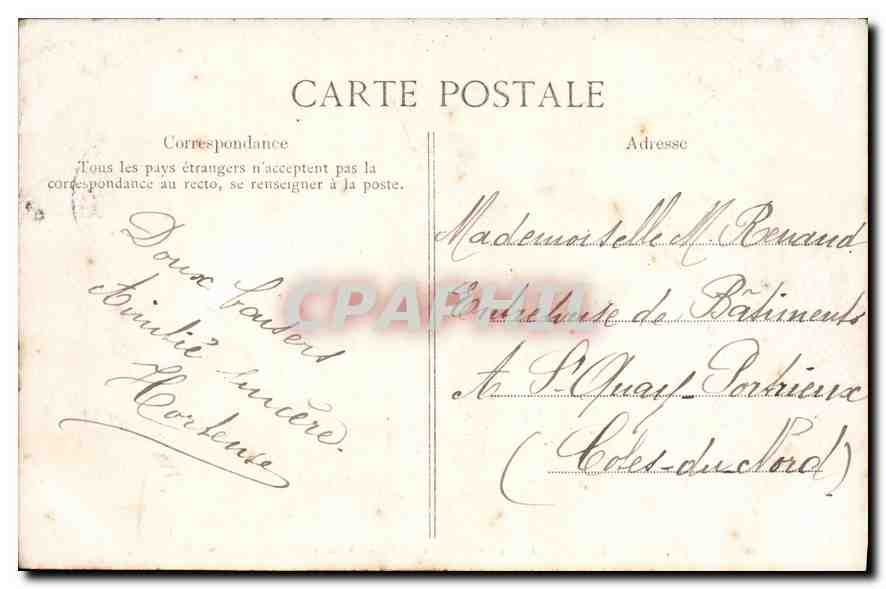 CARTE POSTALE
Correspondance
Tous les pays étrangers n'acceptent pas la
correspondance au recto, se renseigner à la poste.
Doux baisers
Amitié sincère.
Hortense
Adresse
Mademoiselle M. Renaud
Entreteuse de Bâtiments
A St Quay-Portrieux
(Côtes-du-Nord)
CPAPHIL